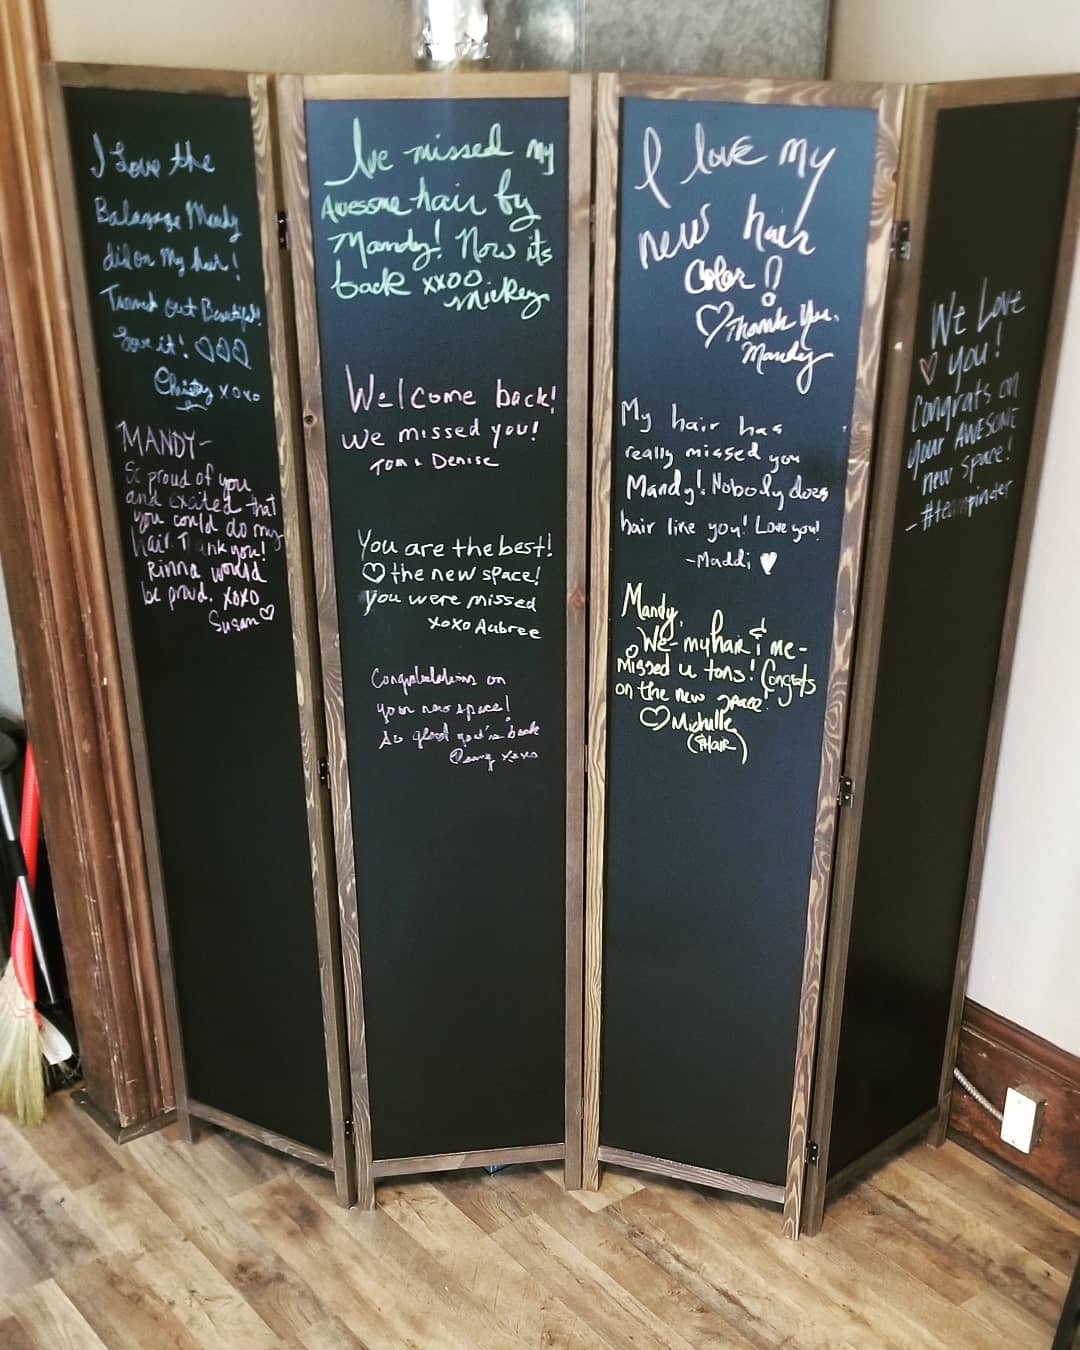 I Love the
Balayage Mandy
did on my hair!
Turned out Beautiful!
Love it! ♡♡♡
Christy xoxo
MANDY-
So proud of you
and excited that
you could do my
hair. Thank you!
Rinna would
be proud. xoxo
Susan ♡
Ive missed my
Awesome hair by
Mandy! Now its
back xxoo
Mickey
Welcome back!
We missed you!
Tom & Denise
You are the best!
♡ the new space!
You were missed
xoxo Aubree
Congratulations on
your new space!
So glad you're back
xoxo
I love my
new hair
Color!
♡ Thank You,
Mandy
My hair has
really missed you
Mandy! Nobody does
hair like you! Love you!
-Maddi ♥
Mandy,
We - my hair & me -
Missed u tons! Congrats
on the new space!
♡ Michelle
(& Hair)
We Love
♡ you!
Congrats on
your AWESOME
new space!
- #teampinder